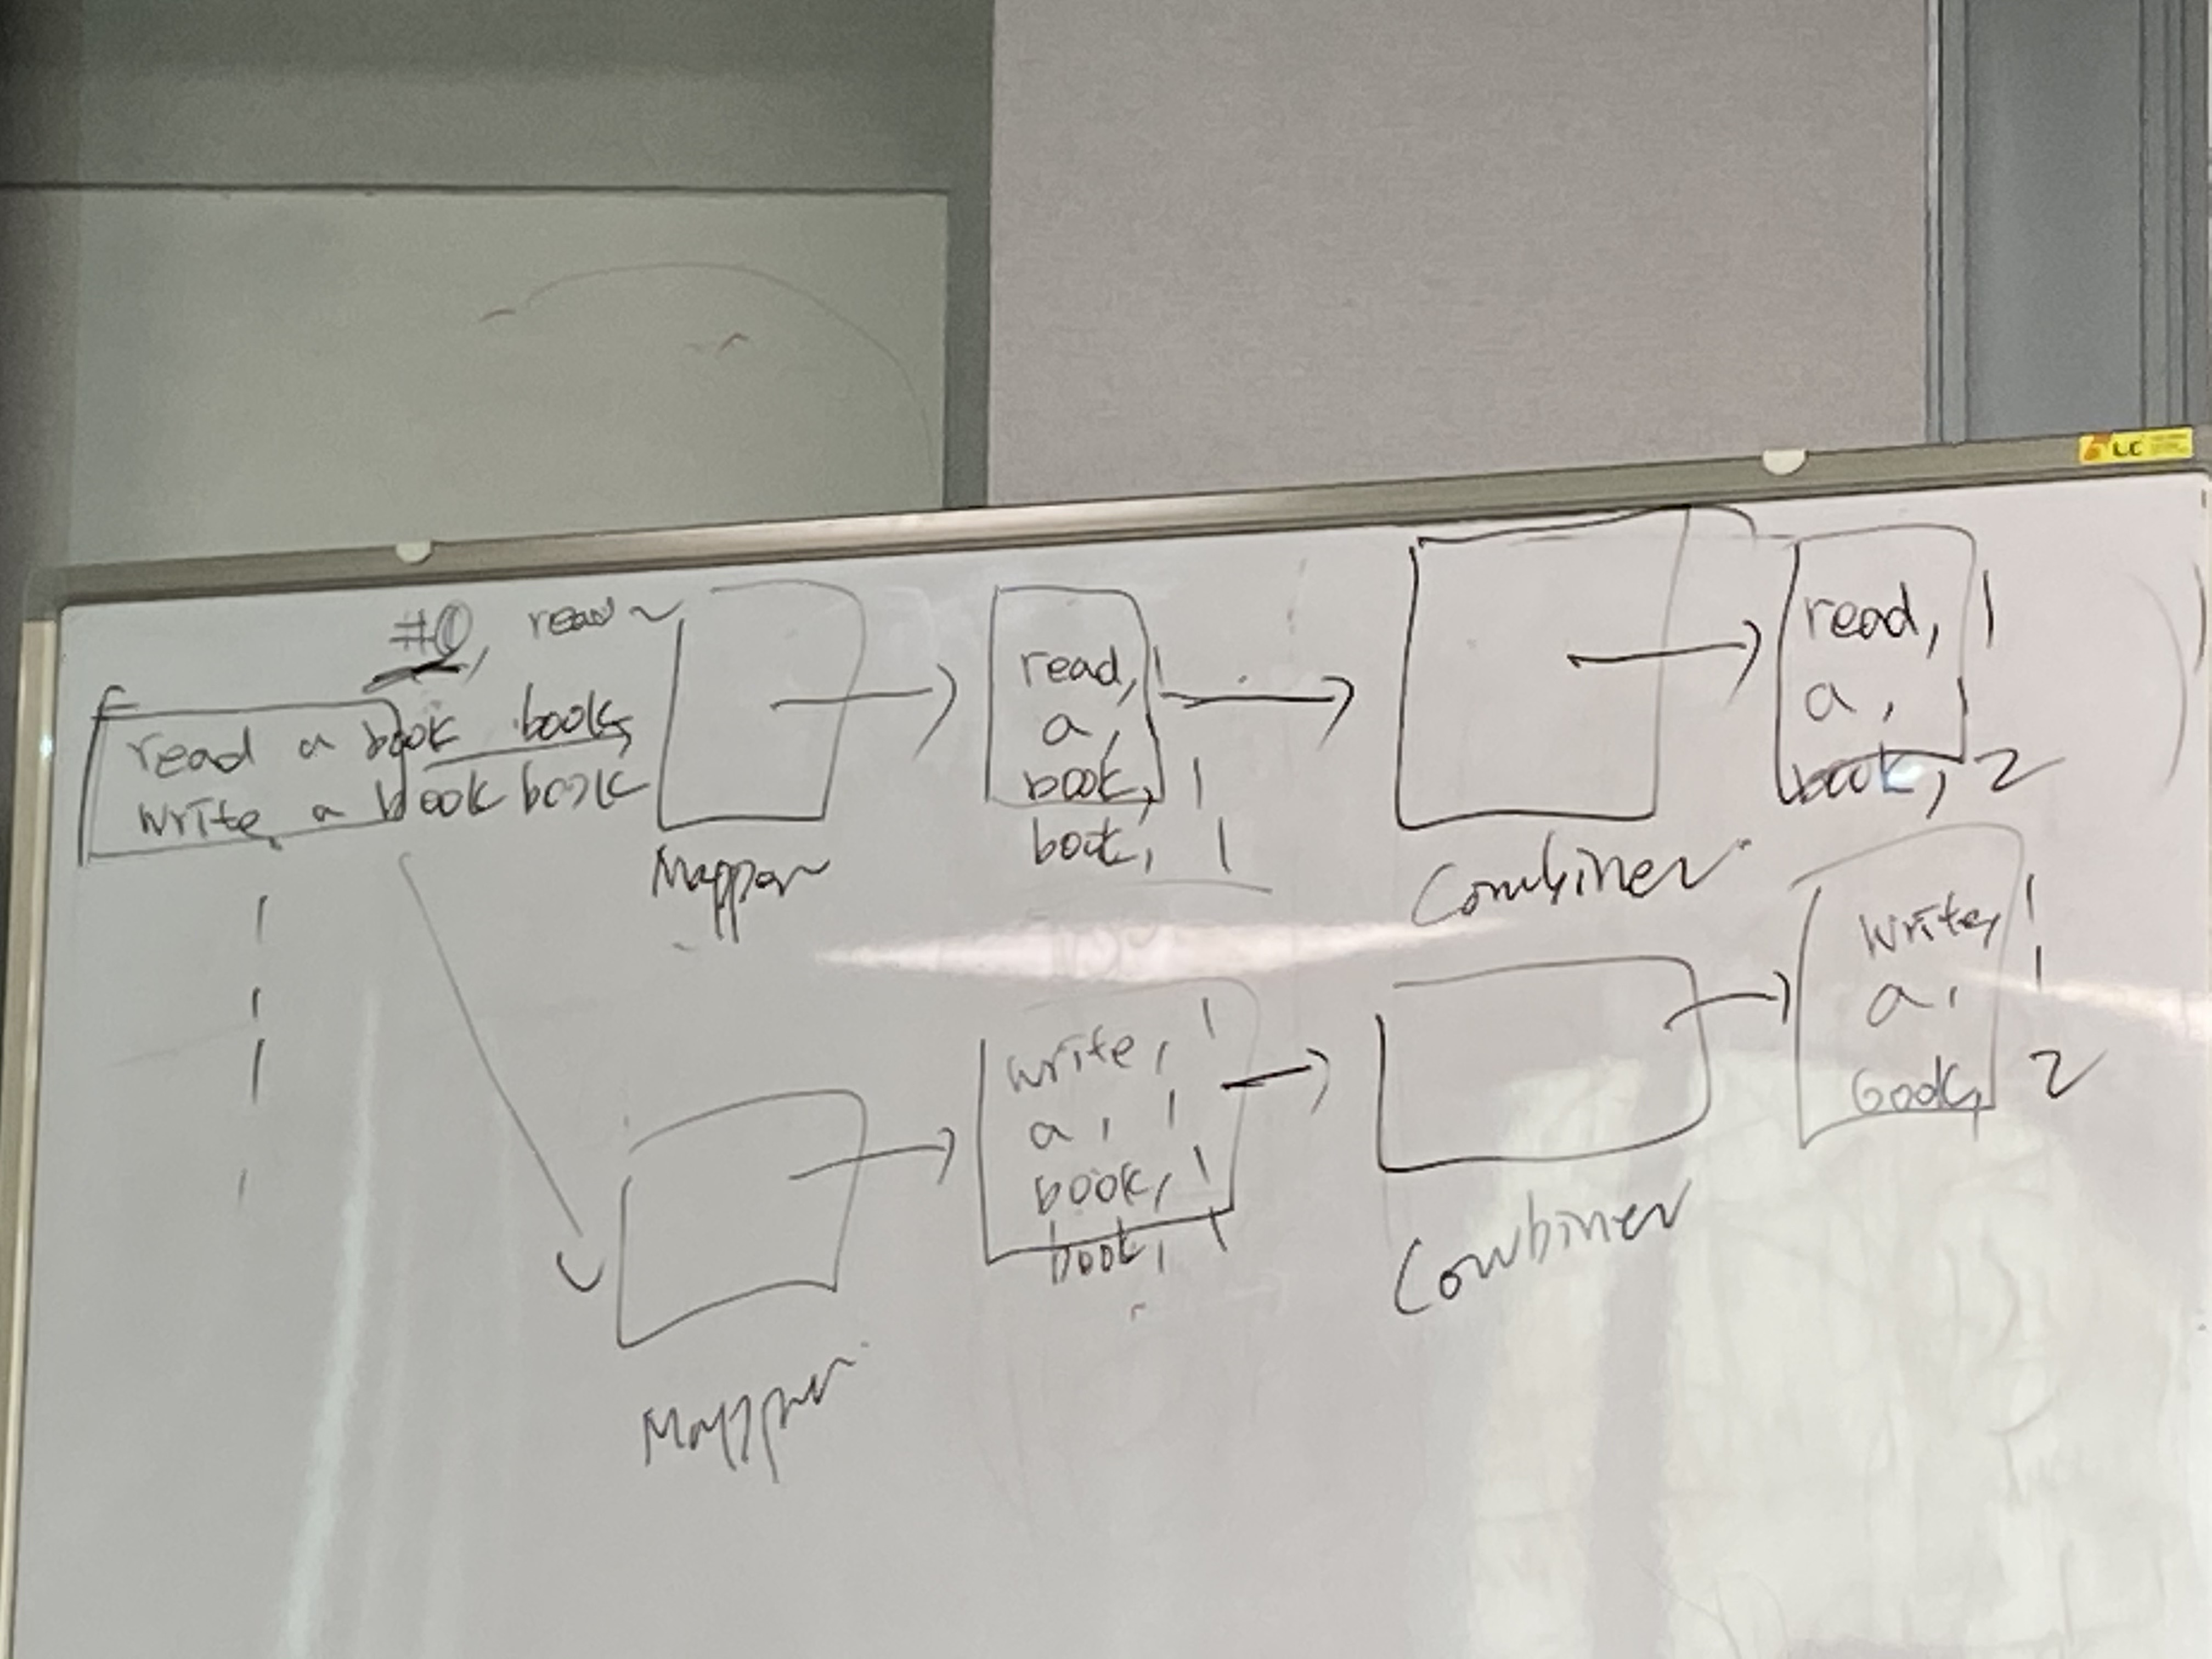 #0, read ~
read a book book
write a book book
Mapper
read, 1
a,
book, 1
book, 1
Combiner
read, 1
a, 1
book, 2
Mapper
write, 1
a, 1
book, 1
book, 1
Combiner
write, 1
a, 1
book, 2
LC